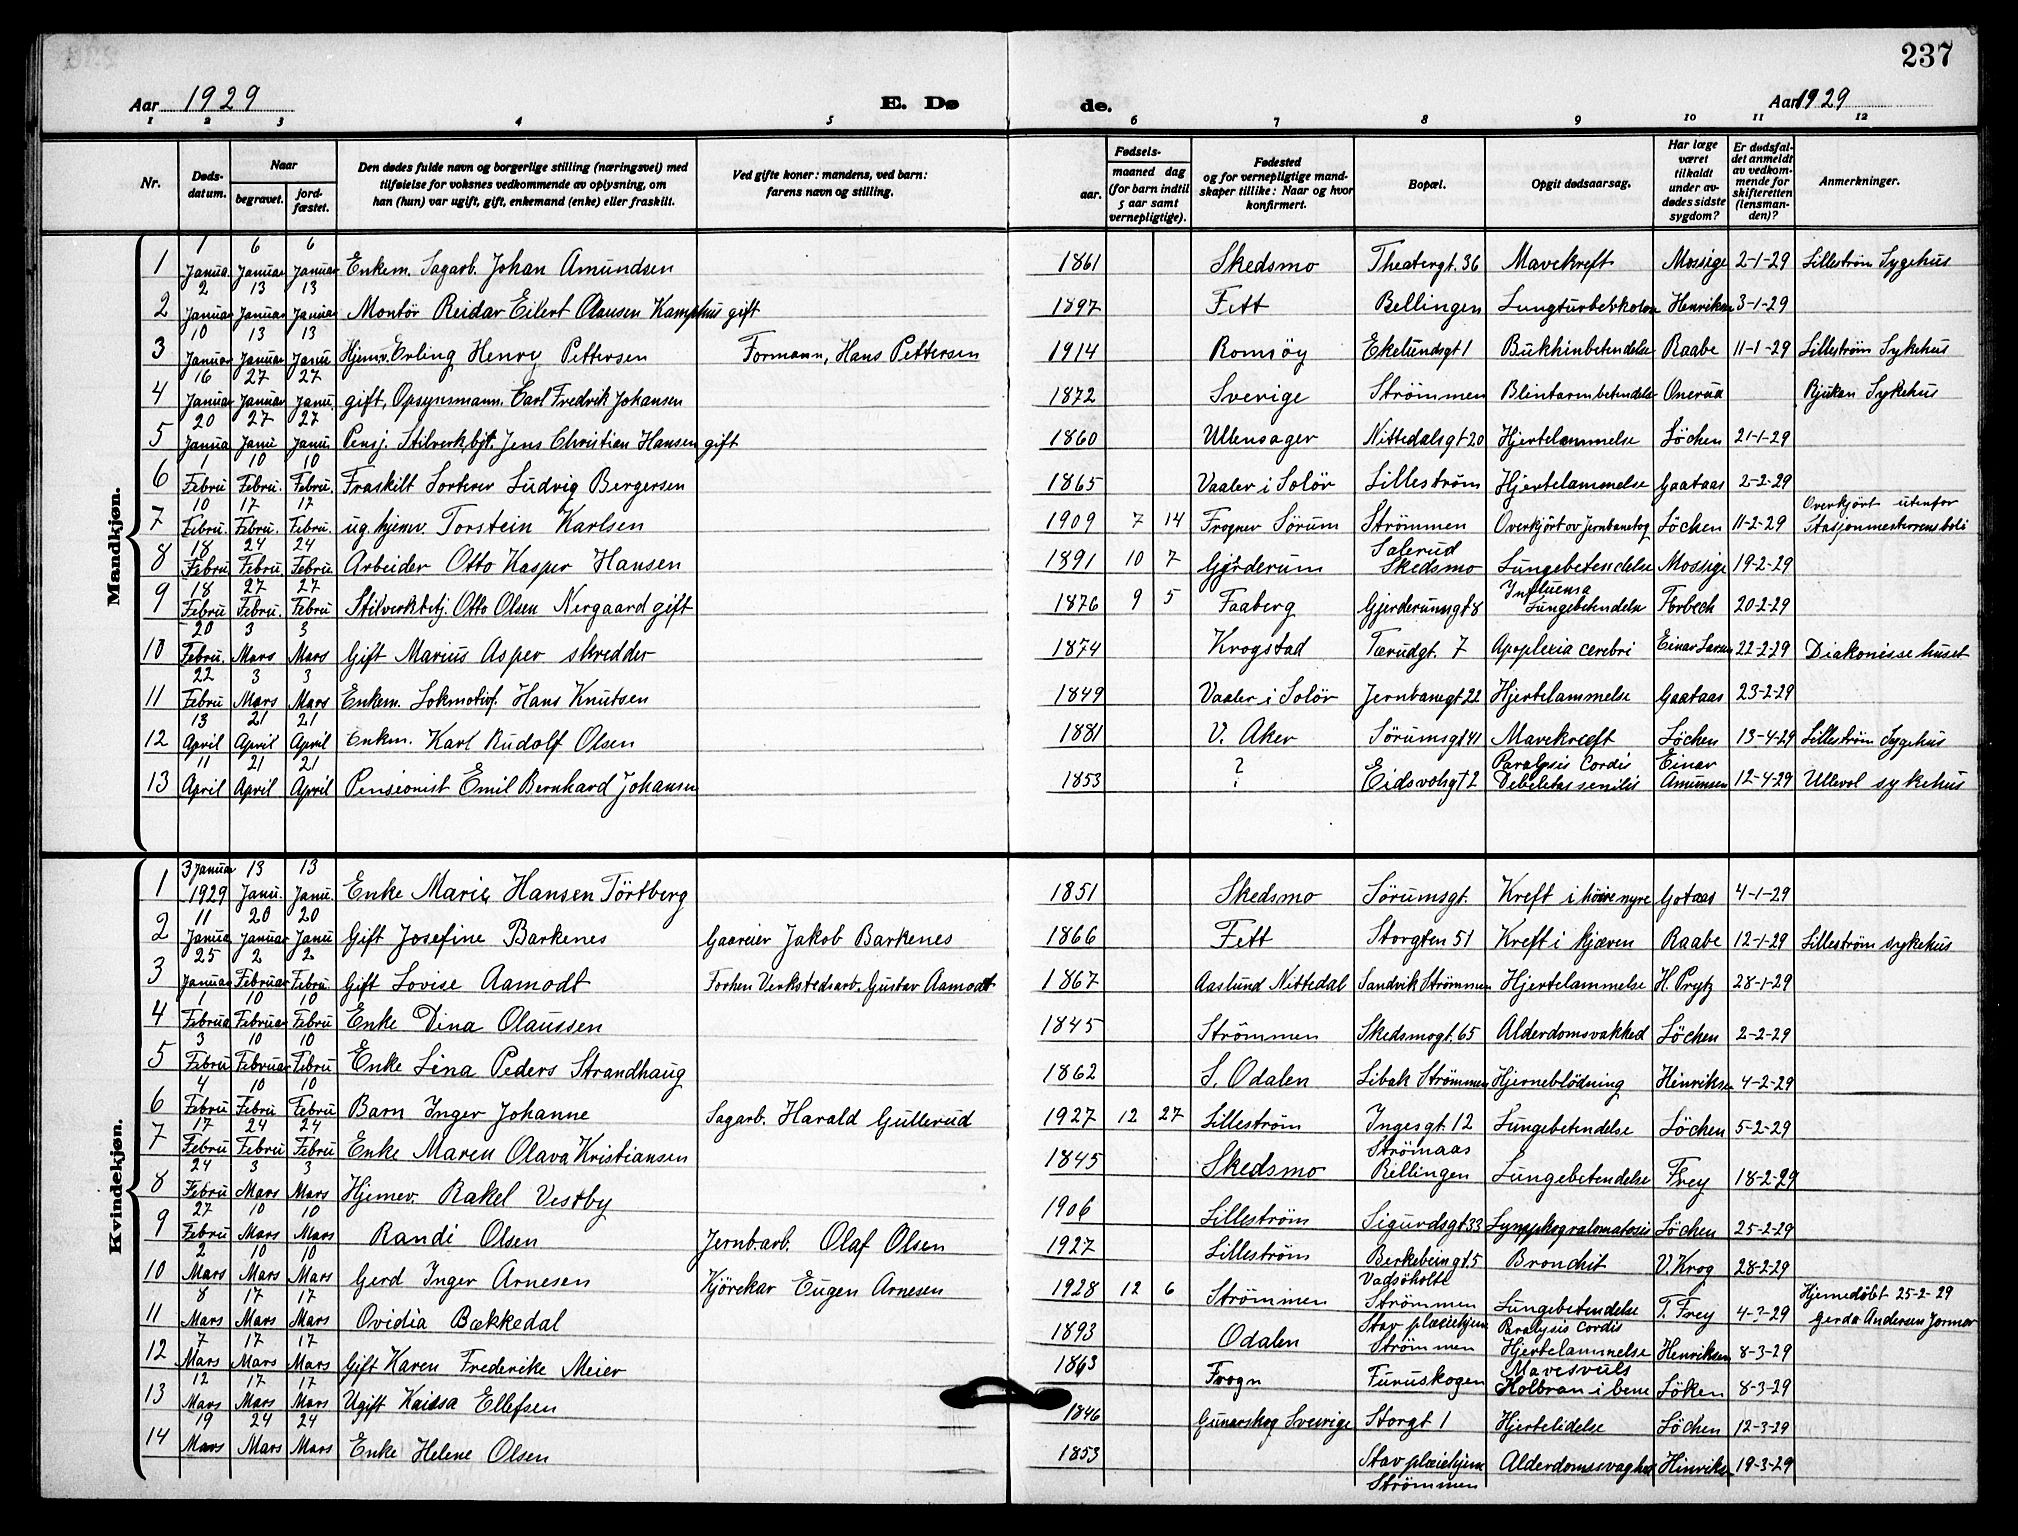 237
Aar 1929 E. Dø de. Aar 1929
1 2 3 4 5 6 7 8 9 10 11 12
Nr. Døds-datum. Naar begravet. jord-fæstet. Den dødes fulde navn og borgerlige stilling (næringsvei) med tilføielse for voksnes vedkommende av oplysning, om han (hun) var ugift, gift, enkemand (enke) eller fraskilt. Ved gifte koner: mandens, ved barn: farens navn og stilling. Fødsels- aar. maaned dag (for barn indtil 5 aar samt vernepligtige). Fødested og for vernepligtige mand-skaper tillike: Naar og hvor konfirmert. Bopæl. Opgit dødsaarsag. Har læge været tilkaldt under av-dødes sidste sygdom? Er dødsfal-det anmeldt av vedkom-mende for skifteretten (lensman-den)? Anmerkninger.
Mandkjøn.
1 1 Janua. 6 Januar 6 Januar Enkem. Sagarb. Johan Amundsen 1861 Skedsmo Theatergt. 36 Mavekreft Mossige 2-1-29 Lillestrøm Sygehus
2 2 Januar 13 Januar 13 Januar Montör Reidar Eilert Olausen Kamphus gift 1897 Fett Bellingen Henriksen 3-1-29
3 10 Januar 13 Januar 13 Janu. Hjemv. Erling Henry Pettersen Formann, Hans Pettersen 1914 Romsöy Ekelundsgt 1 Bukhinbetendelse Raabe 11-1-29 Lillestrøm Sykehus
4 16 Januar 27 Januar 27 Janu. gift, Opsynsmann. Carl Fredrik Johansen 1872 Sverige Strömmen Blintarmbetendelse Onerud Rjukan Sykehus
5 20 Janua 27 Janu. 27 Janu. Pensj. Stilverkbtj. Jens Christian Hansen gift 1860 Ullensager Nittedalsgt 20 Hjertelammelse Löchen 21-1-29
6 1 Febru 10 Febru. 10 Febru. Fraskilt Sorterer Ludvig Bergersen 1865 Vaaler i Solör Lilleström Hjertelammelse Gaataas 2-2-29
7 10 Febru. 17 Febru. 17 Febru. ug. hjemv. Torstein Karlsen 1909 7 14 Frogner Sörum Strömmen Overkjört av Jernbanetog Löchen 11-2-29 Overkjört utenfor Stasjonmesterens boli
8 18 Febru 24 Febru. 24 Febru. Arbeider Otto Kasper Hansen 1891 10 7 Gjerderum Salerud Skedsmo Lungebetendelse Mossige 19-2-29
9 18 Febru 27 Febru. 27 Febru Stilverkbtj. Otto Olsen Nergaard gift 1876 9 5 Faaberg Gjerderumsgt 8 Influensa Lungebetendelse Forbech 20-2-29
10 20 Febru. 3 Mars 3 Mars Gift Marius Asper skredder 1874 Krogstad Tærudgt. 7 Apoplexia cerebri Einar Larsen 22-2-29 Diakonissehuset
11 22 Febru 3 Mars 3 Mars Enkem. Lokmotivf. Hans Knutsen 1849 Vaaler i Solör Jernbanegt 22 Hjertelammelse Gaataas 23-2-29
12 13 April 21 April 21 April Enkm. Karl Rudolf Olsen 1881 V. Aker Sörumsgt 41 Mavekreeft Löchen 13-4-29 Lilleström Sygehus
13 11 April 21 April 21 April Pensionist Emil Bernhard Johansen 1853 ? Eidsvolsgt 2 Paralysis Cordis Debeletas senilis Einar Amunsen 12-4-29 Ullevol sykehus
Kvindekjøn.
1 3 Januar 1929 13 Janu. 13 Janu. Enke Marie Hansen Törtberg 1851 Skedsmo Sörumsgt. Kreft i höire nyre Gotaas 4-1-29
2 11 Janua 20 Januar 20 Janu Gift Josefine Barkenes Gaareier Jakob Barkenes 1866 Fett Storgten 51 Kreft i kjæven Raabe 12-1-29 Lilleström sykehus
3 25 Januar 2 Februar 2 Febru Gift Lovise Aamodt Forhen Verkstedsarb. Gustav Aamodt 1867 Aaslund Nittedal Sandvik Strömmen Hjertelammelse H. Prytz 28-1-29
4 1 Februa 10 Februar 10 Febru Enke Dina Olaussen 1845 Strömmen Skedsmogt. 65 Alderdomsvakked Löchen 2-2-29
5 3 Febru 10 Februar 10 Febru Enke Lina Peders Strandhaug 1862 S. Odalen Libak Strömmen Hjerneblödning Hinriksen 4-2-29
6 4 Febru 10 Febru 10 Febru Barn Inger Johanne Sagarb. Harald Gullerud 1927 12 27 Lilleström Ingesgt. 12 Lungebetendelse Löchen 5-2-29
7 17 Febru 24 Febru 24 Febru Enke Maren Olava Kristiansen 1845 Skedsmo Strömaas Rellingen Lungebetendelse Frey 18-2-29
8 24 Febru 3 Mars 3 Mars Hjemev. Rakel Vestby 1906 Lilleström Sigurdsgt 33 Lymphogralomatosis Löchen 25-2-29
9 27 Febru 10 Mars 10 Mars Randi Olsen Jernb.arb. Olaf Olsen 1927 Lilleström Berkebeingt 5 Bronchit V. Krog 28-2-29
10 2 Mars 10 Mars 10 Mars Gerd Inger Arnesen Kjörekar Eugen Arnesen 1928 12 6 Strömmen Vadsöholte Strömmen Lungebetendelse T. Frey 4-3-29 Hjemedöbt 25-2-29 gerda Andersen Jormor
11 8 Mars 17 Mars 17 Mars Ovidia Bækkedal 1893 Odalen Stav plæiehjem Strömmen Paralysis Cordis Hjertelammelse Henriksen 8-3-29
12 7 Mars 17 Mars 17 Mars Gift Karen Frederike Meier 1863 Frogn Furuskogen Mavesvuls Kolbran i bene Löken 8-3-29
13 12 Mars 17 Mars 17 Mars Ugift Kaissa Ellefsen 1846 Gunarskog Sveirige Storgt 1 Hjertelidelse Löchen 12-3-29
14 19 Mars 24 Mars 24 Mars Enke Helene Olsen 1853 Stav plæiehjem Strömmen Alderdomssvaghed Hinriksen 19-3-29